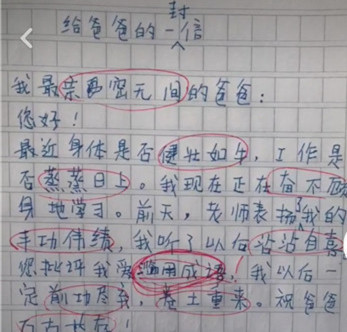 给爸爸的一封信
我最亲密无间的爸爸：
您好！
最近身体是否健壮如牛，工作是
否蒸蒸日上。我现在正在奋不顾
身地学习。前天，老师表扬了我的
丰功伟绩，我听了以后沾沾自喜
您批评我爱滥用成语，我以后一
定前功尽弃，卷土重来。祝爸爸
万寿